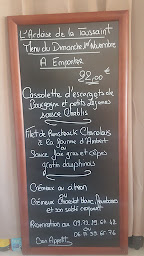 L'Ardoise de la Toussaint
Menu du Dimanche 1er Novembre
A Emporter
22,00 €
Cassolette d'escargots de
Bourgogne et petits légumes
sauce Chablis
Filet de Charolais
à la fourme d'Ambert
ou
Sauce foie gras et cèpes
gratin dauphinois
Crémeux au citron
ou
Crémeux Chocolat blanc, framboises
et son sablé croquant
Reservation au
ou
Bon Appétit